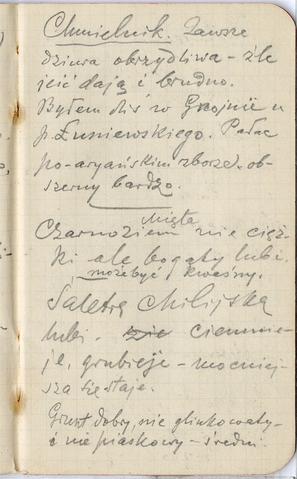 Chmielnik. Zawsze
dziura obrzydliwa – źle
jeść dają i brudno.
Byłem dziś w Gnojnie u
p. Łuniewskiego. Pałac
po-aryańskim zborze – ob-
szerny bardzo.
Mięta
Czarnoziem nie cięż-
ki ale bogaty lubi.
może być kwaśny.
Saletrę Chilijską
lubi. ciemnie-
je, grubieje – mocniej-
sza się staje.
Grunt dobry, nie glinkowaty –
i nie piaskowy – średni.